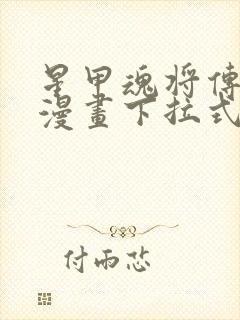 星甲魂将傳
漫畫下拉式
付雨芯